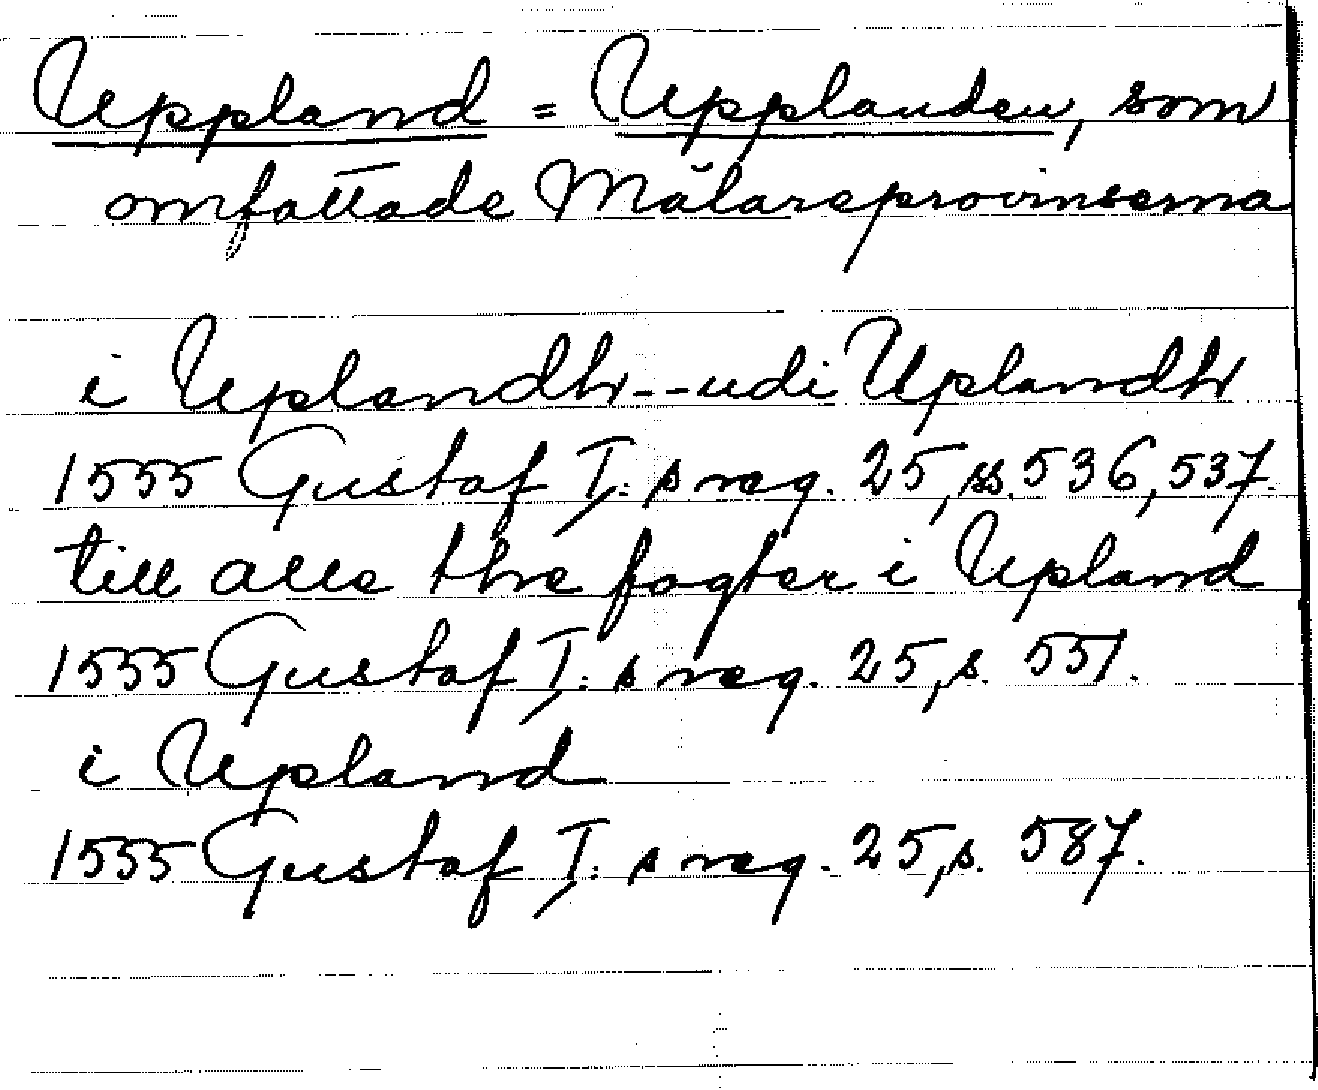 Uppland = Upplanden, som
omfattade Mälareprovinserna
i Uplandh -- udi Uplandh
1555 Gustaf I:s reg. 25, ss. 536, 537.
till alle the fogter i Upland
1555 Gustaf I:s reg. 25, s. 551.
i Upland
1555 Gustaf I:s reg. 25, s. 587.